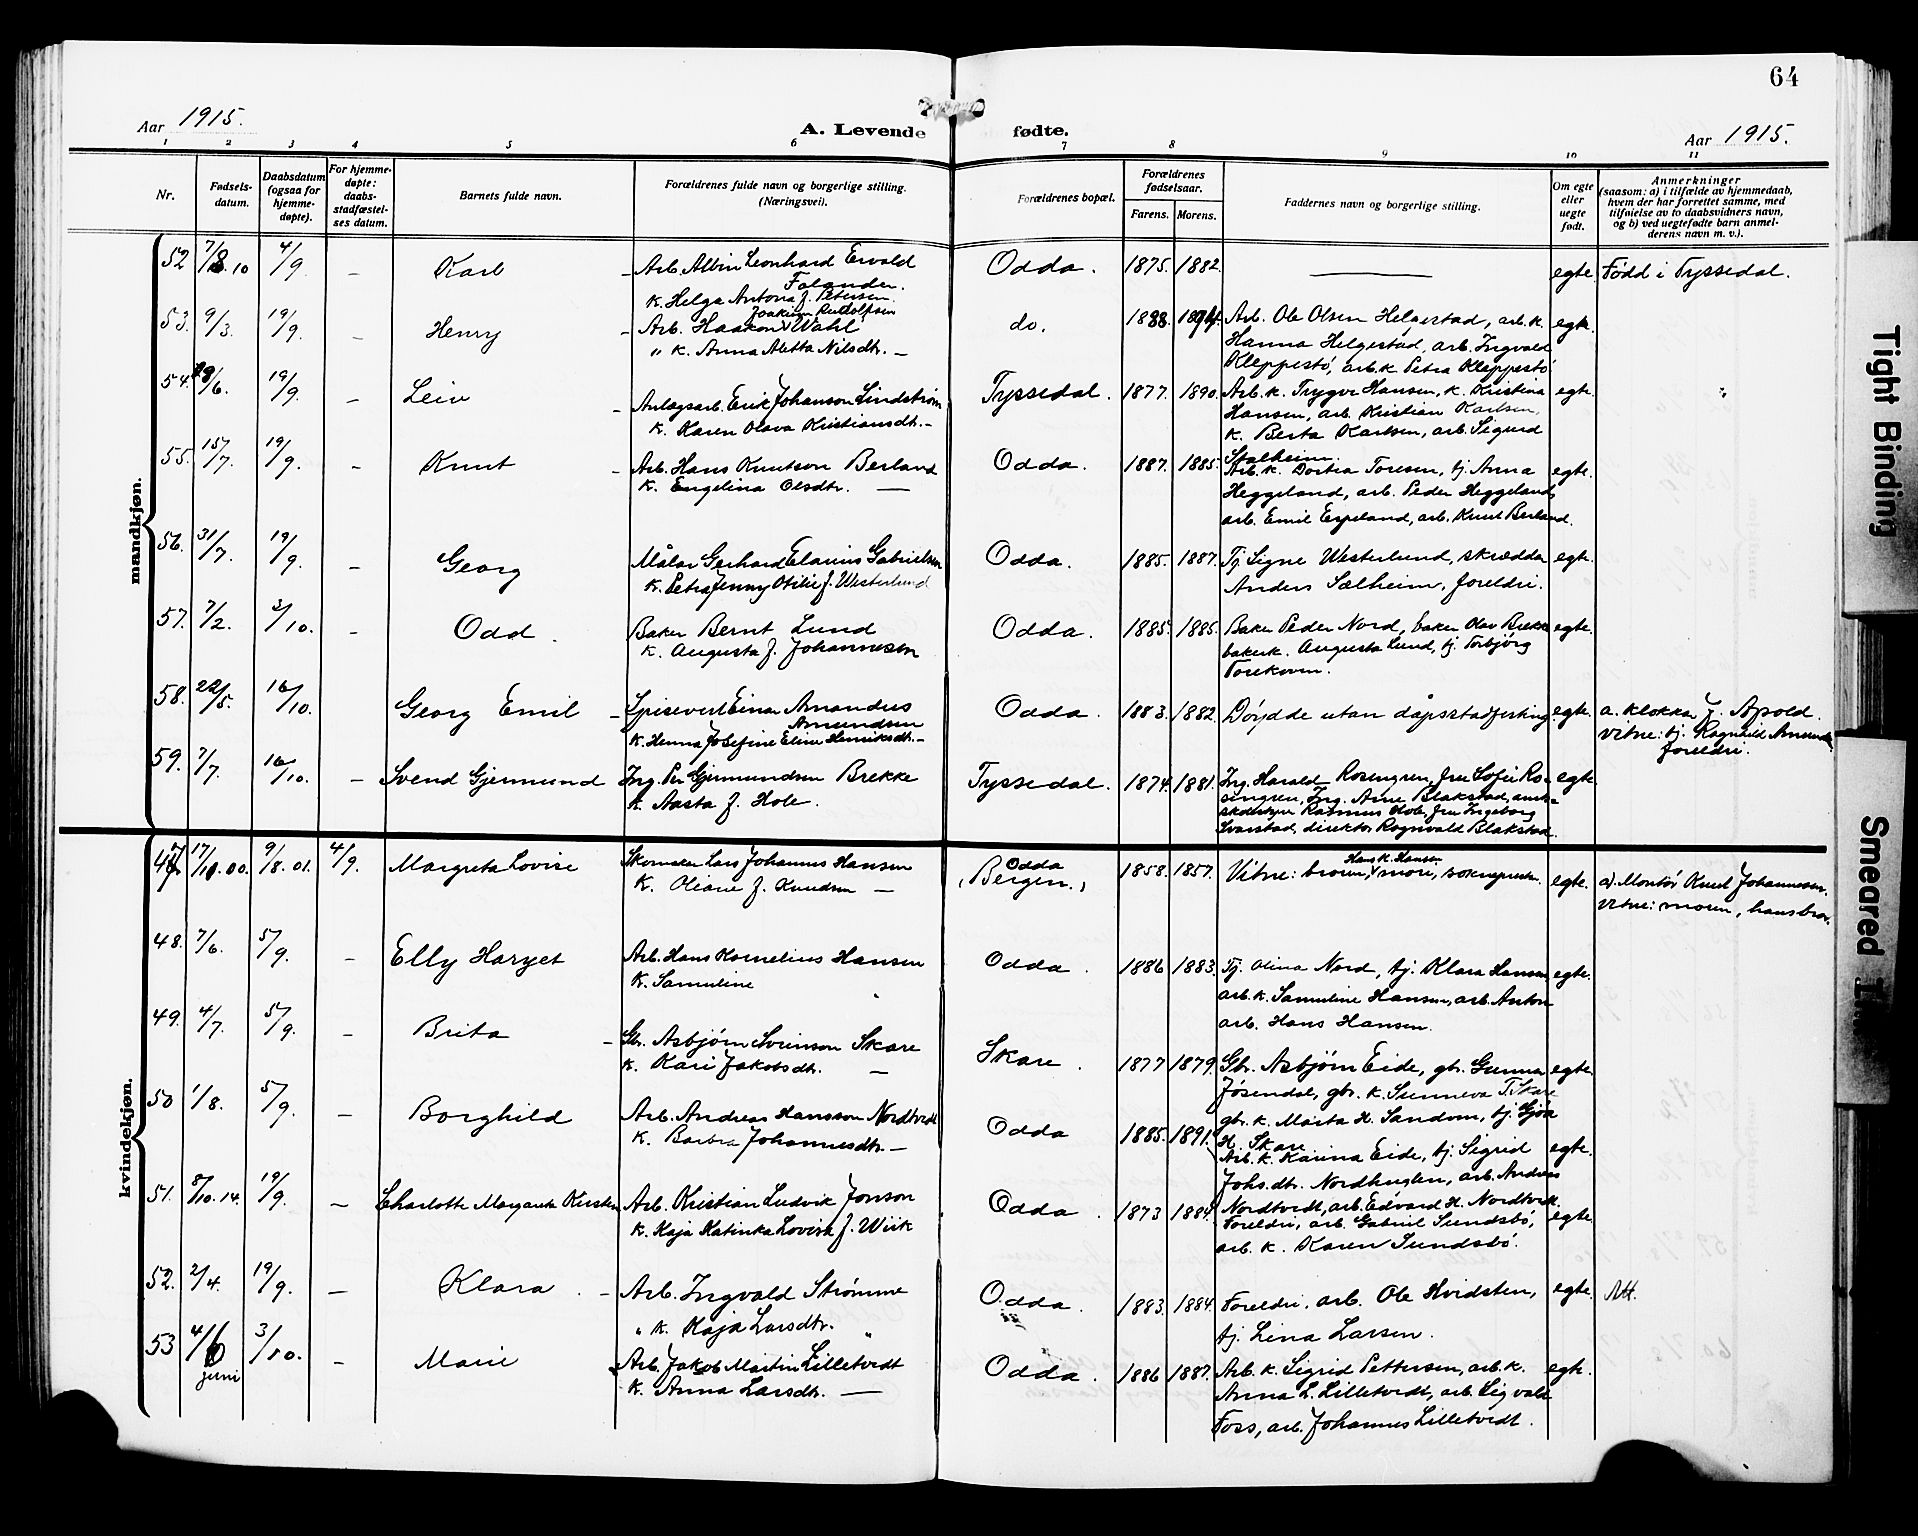 64
Aar 1915.
A. Levende fødte.
Aar 1915.
1 2 3 4 5 6 7 8 9 10 11
Nr.
Fødsels-
datum.
Daabsdatum
(ogsaa for
hjemme-
døpte).
For hjemme-
døpte:
daabs-
stadfæstel-
ses datum.
Barnets fulde navn.
Forældrenes fulde navn og borgerlige stilling.
(Næringsvei).
Forældrenes bopæl.
Forældrenes
fødselsaar.
Farens. Morens.
Faddernes navn og borgerlige stilling.
Om egte
eller
uegte
født.
Anmerkninger
(saasom: a) i tilfælde av hjemmedaab,
hvem der har forrettet samme, med
tilføielse av to daabsvidners navn,
og b) ved uegtefødte barn anmel-
derens navn m. v.).
mandkjøn.
52 7/8.10 4/9. - Karl - Arb. Albin Leonhard Ervald Odda. 1875. 1882. — egte. Fødd i Tyssedal.
Falander.
k. Helga Antona f. Petersen.
Joakim Rudolfsen
53. 9/3. 19/9. - Henry - Arb. Haakon Wahl do. 1888. 1894. Arb. Ole Olsen Helgestad, arb. k. egte.
" k. Anna Aletta Nilsdtr. — Hanna Helgestad, arb. Ingvald
Kleppestø, arb. k. Petra Kleppestø
54. 28/6. 19/9. - Leiv - Anlægsarb. Erik Johanson Lindstrøm Tyssedal. 1877. 1890. Arb. k. Trygve Hansen, k. Kristina egte. "
k. Karen Olava Kristiansdtr. — Hansen, arb. Kristian Karlsen,
k. Berta Karlsen, arb. Sigurd
Stalheim.
55. 15/7. 19/9. - Knut - Arb. Hans Knutson Berland Odda. 1887. 1885. Arb. k. Dortea Toresen, tj. Anna egte.
k. Engelina Olsdtr. — Heggeland, arb. Peder Heggeland,
arb. Emil Erpeland, arb. Knut Berland.
56. 31/7. 19/9. - Georg Målar Gerhard Elarius Gabrielsen Odda. 1885. 1887. Tj. Signe Westerlund, skrædder egte.
k. Petra Jenny Otilie f. Westerlund Anders Sælheim, foreldri.
57. 7/2. 3/10. - Odd. Baker Bernt Lund Odda. 1885. 1885. Baker Peder Nord, baker Olav Brekke egte.
k. Augusta f. Johannesen bakerk. Augusta Lund, tj. Torbjørg
Torekoven.
58. 22/5. 16/10. Georg Emil - Spisevert Einar Amandus Odda. 1883. 1882. Døydde utan dåpsstadfesting. egte. a. klokkar J. Apold.
Amundsen vitne: tj. Ragnhild Amunds.
k. Henna Josefine Eline Henriksdtr. — foreldri.
59. 7/7. 16/10. - Svend Gjermund Ing. Per Gjermundsen Brekke Tyssedal. 1874. 1881. Ing. Harald Rosengren, fru Sofie Ro- egte
k. Aasta f. Hole. sengren, Ing. Arne Blakstad, amts-
skolestyrer Rasmus Hole, fru Ingeborg
Svarstad, direktør Ragnvald Blakstad.
kvindekjøn.
47 17/10.00. 9/8.01. 4/9. Margreta Lovise Skomaker Lars Johannes Hansen Odda 1858. 1857. Vitne: broren, Hans K. Hansen, mori, soknepresten. egte. a). Montør Knut Johannesen.
K. Oliane f. Knudsen — (Bergen.) vitne: moren, hans bror.
48. 7/6. 5/9. - Elly Haryet Arb. Hans Kornelius Hansen Odda. 1886 1883. Tj. Olina Nord, tj. Klara Hansen, egte.
K. Samuline " arb. k. Samuline Hansen, arb. Anton
arb. Hans Hansen.
49. 4/7. 5/9. - Brita - Gbr. Asbjørn Sveinson Skare Skare. 1877 1879. Gbr. Asbjørn Eide, gbr. Gunnar egte.
k. Kari Jakobsdtr. — Jøsendal, gbr. k. Sunneva T. Skare
gbr. k. Marta H. Sandven, tj. Gjøa
H. Skare
50 1/8. 5/9. - Borghild Arb. Andreas Hansson Nordtvedt Odda 1885. 1891. Arb. k. Karina Eide, tj. Sigrid egte.
K. Barbra Johannesdtr. — Johs.dtr. Nordhuglen, arb. Andreas
Nordtvedt, arb. Edvard H. Nordtvedt.
51. 8/10.14. 19/9. - Charlotte Margareta Kirsten Arb. Kristian Ludvik Jonson Odda. 1873 1884. Foreldri, arb. Gabriel Sundsbø, egte.
k. Kaja Katinka Lovisa f. Wiik arb. k. Karen Sundsbø.
52. 2/4. 19/9. - Klara. - Arb. Ingvald Strømme Odda. 1883. 1884. Foreldri, arb. Ole Hvidsten, egte. Att.
" k. Kaja Larsdtr. " tj. Lina Larsen.
53 4/6 3/10. - Marie Arb. Jakob Martin Lilletvedt Odda. 1886 1887. Arb. k. Sigrid Pettersen, arb. k. egte.
juni K. Anna Larsdtr. — Anna L. Lilletvedt, arb. Sigvald
Foss, arb. Johannes Lilletvedt.
Tight Binding
Smeared